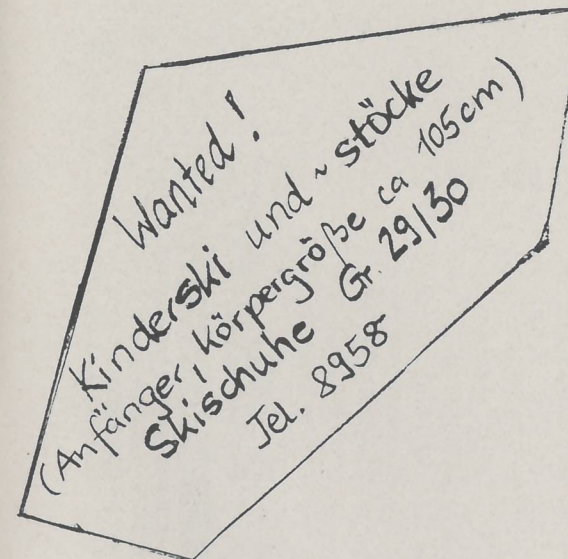 Wanted!
Kinderski und ~ stöcke
(Anfänger, Körpergröße ca 105cm)
Skischuhe Gr. 29/30
Tel. 8958